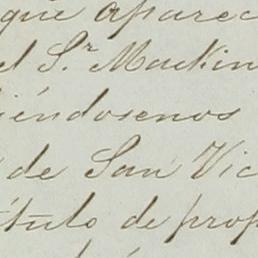 que aparec
el Sr. Mackin
iéndosenos
de San Vic
ítulo de prop